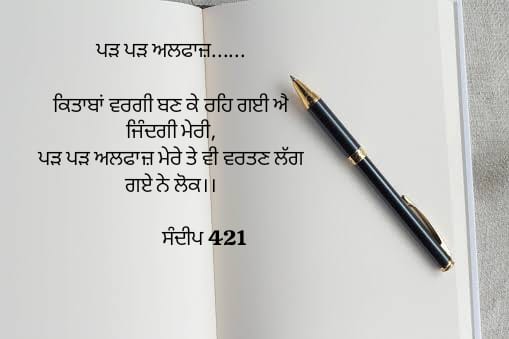 ਪੜ ਪੜ ਅਲਫਾਜ਼......
ਕਿਤਾਬਾਂ ਵਰਗੀ ਬਣ ਕੇ ਰਹਿ ਗਈ ਐ
ਜਿੰਦਗੀ ਮੇਰੀ,
ਪੜ ਪੜ ਅਲਫਾਜ਼ ਮੇਰੇ ਤੇ ਵੀ ਵਰਤਣ ਲੱਗ
ਗਏ ਨੇ ਲੋਕ।।
ਸੰਦੀਪ 421